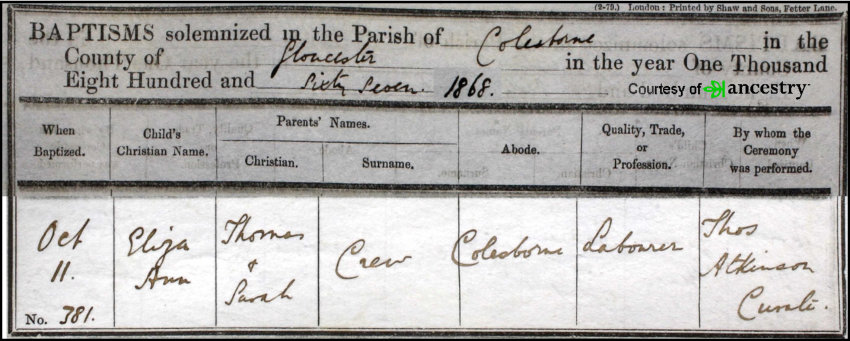 (2-79.) London: Printed by Shaw and Sons, Fetter Lane.
BAPTISMS solemnized in the Parish of Colesborne in the
County of Gloucester in the year One Thousand
Eight Hundred and Sixty Seven. 1868.
Courtesy of ancestry
When Baptized.
Child's Christian Name.
Parents' Names.
Christian.
Surname.
Abode.
Quality, Trade, or Profession.
By whom the Ceremony was performed.
Oct
11.
No. 381.
Eliza
Ann
Thomas
&
Sarah
Crew
Colesborne
Labourer
Thos
Atkinson
Curate.